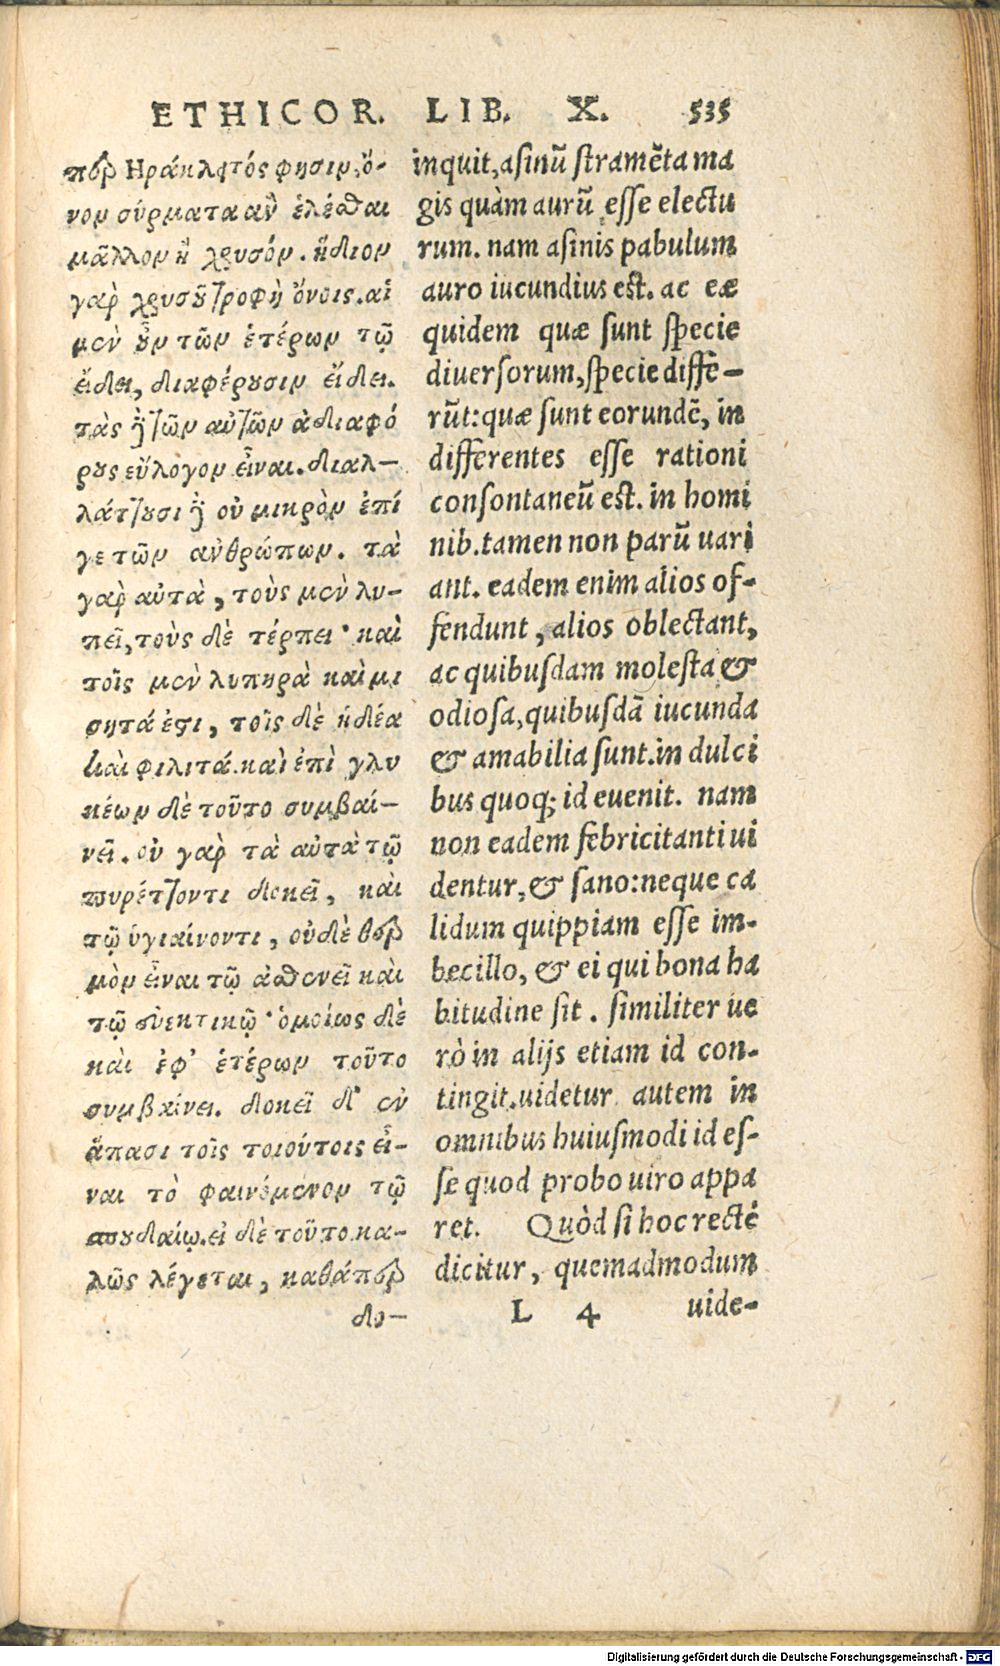 ETHICOR. LIB. X. 535
περ Ηράκλειτός φησιν, ὄ-
νον σύρματα ἂν ἑλέσθαι
μᾶλλον ἢ χρυσόν. ἥδιον
γὰρ χρυσοῦ τροφὴ ὄνοις. αἱ
μὲν οὖν τῶν ἑτέρων τῷ
εἴδει, διαφέρουσιν εἴδει.
τὰς δὲ τῶν αὐτῶν ἀδιαφό
ρους εὔλογον εἶναι. διαλ-
λάττουσι δὲ οὐ μικρὸν ἐπί
γε τῶν ἀνθρώπων. τὰ
γὰρ αὐτὰ, τοὺς μὲν λυ-
πεῖ, τοὺς δὲ τέρπει· καὶ
τοῖς μὲν λυπηρὰ καὶ μι
σητά ἐστι, τοῖς δὲ ἡδέα
καὶ φιλητά. καὶ ἐπὶ γλυ
κέων δὲ τοῦτο συμβαί-
νει. οὐ γὰρ τὰ αὐτὰ τῷ
πυρέττοντι δοκεῖ, καὶ
τῷ ὑγιαίνοντι, οὐδὲ θερ
μὸν εἶναι τῷ ἀσθενεῖ καὶ
τῷ εὐεκτικῷ· ὁμοίως δὲ
καὶ ἐφ' ἑτέρων τοῦτο
συμβαίνει. δοκεῖ δ' ἐν
ἅπασι τοῖς τοιούτοις εἶ-
ναι τὸ φαινόμενον τῷ
σπουδαίῳ. εἰ δὲ τοῦτο κα-
λῶς λέγεται, καθάπερ
δο-
inquit, asinũ stramẽta ma
gis quàm aurũ esse electu
rum. nam asinis pabulum
auro iucundius est. ac eæ
quidem quæ sunt specie
diuersorum, specie diffe-
rũt: quæ sunt eorundẽ, in
differentes esse rationi
consontaneũ est. in homi
nib. tamen non parũ uari
ant. eadem enim alios of-
fendunt, alios oblectant,
ac quibusdam molesta &
odiosa, quibusdã iucunda
& amabilia sunt. in dulci
bus quoq; id euenit. nam
non eadem febricitanti ui
dentur, & sano: neque ca
lidum quippiam esse im-
becillo, & ei qui bona ha
bitudine sit. similiter ue
rò in alijs etiam id con-
tingit. uidetur autem in
omnibus huiusmodi id es-
se quod probo uiro appa
ret. Quòd si hoc rectè
dicitur, quemadmodum
L 4 uide-
Digitalisierung gefördert durch die Deutsche Forschungsgemeinschaft - DFG